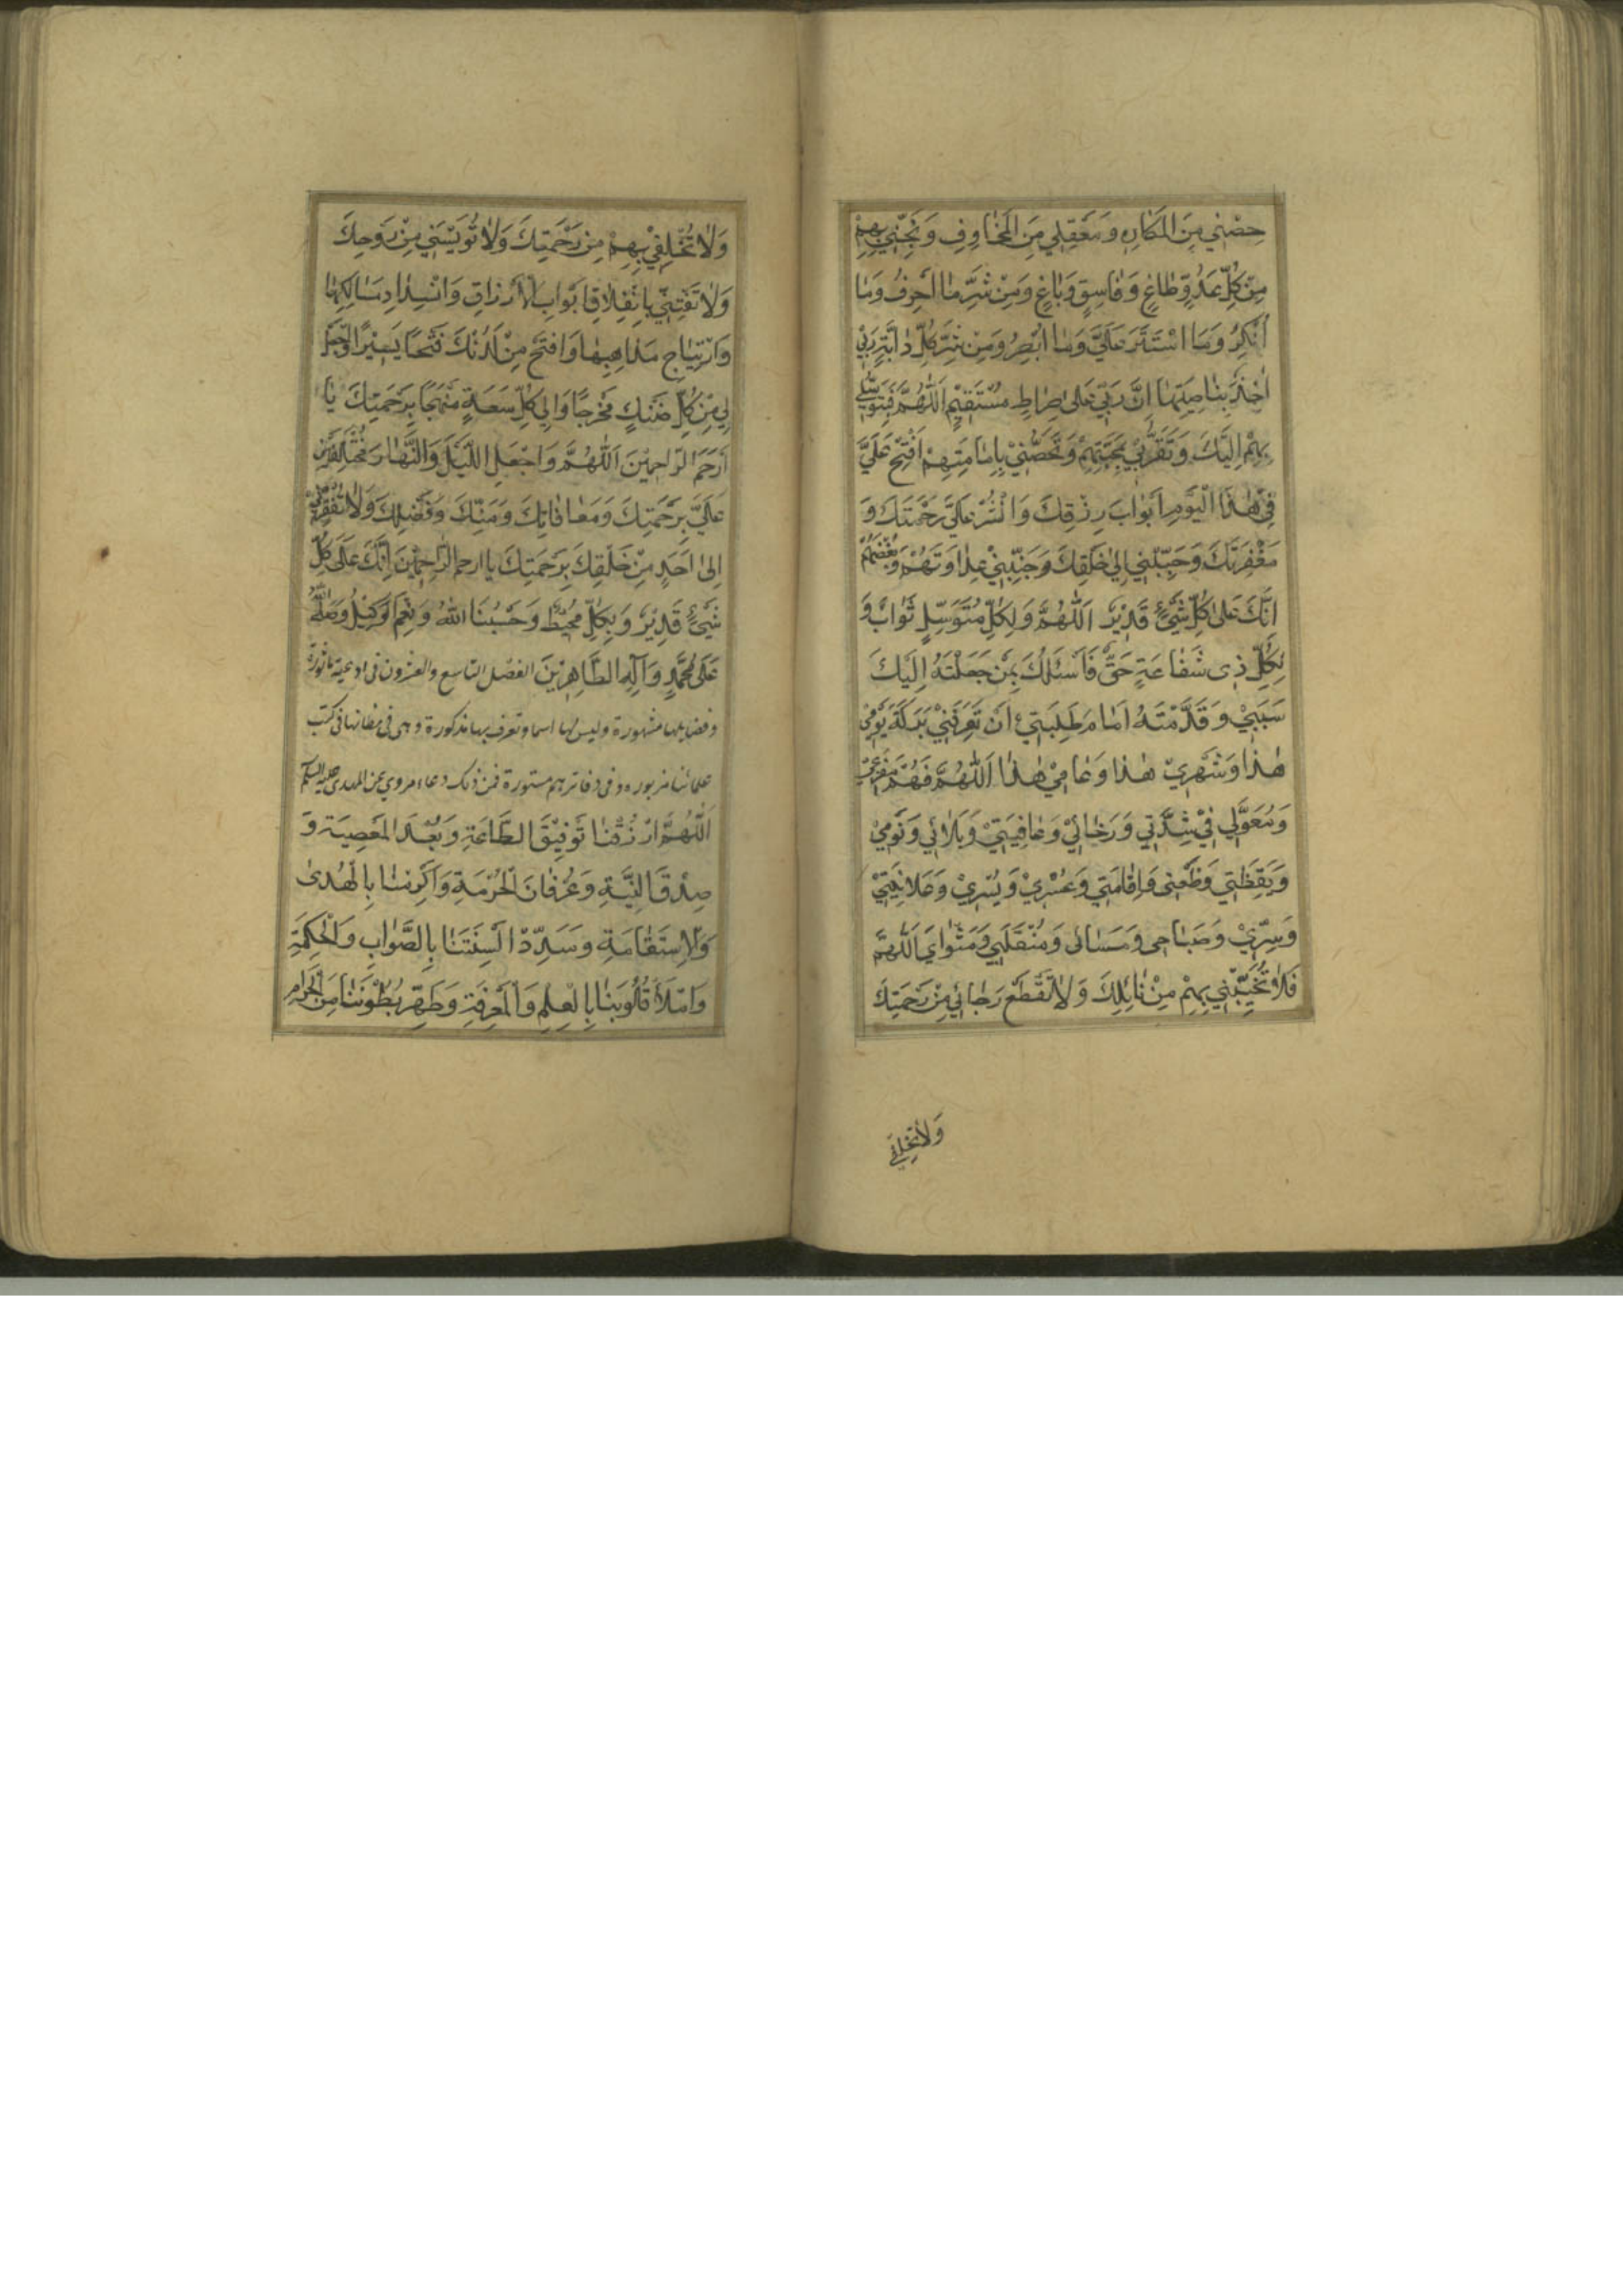 حِصْنِي مِنَ الْمَكَارِهِ وَمَعْقِلِي مِنَ الْمَخَاوِفِ وَنَجِّنِي بِهِمْ
مِنْ كُلِّ عَدُوٍّ طَاغٍ وَفَاسِقٍ وَبَاغٍ وَمِنْ شَرِّ مَا اَعْرِفُ وَمَا
اُنْكِرُ وَمَا اسْتَتَرَ عَلَيَّ وَمَا اُبْصِرُ وَمِنْ شَرِّ كُلِّ دَابَّةٍ رَبِّي
اٰخِذٌ بِنَاصِيَتِهَا اِنَّ رَبِّي عَلَى صِرَاطٍ مُسْتَقِيْمٍ اَللّٰهُمَّ فَبِتَوَسُّلِي
بِهِمْ اِلَيْكَ وَتَقَرُّبِي بِمَحَبَّتِهِمْ وَتَحَصُّنِيْ بِاِمَامَتِهِمْ اَفْتَحْ عَلَيَّ
فِي هٰذَا الْيَوْمِ اَبْوَابَ رِزْقِكَ وَانْشُرْ عَلَيَّ رَحْمَتَكَ وَ
مَغْفِرَتَكَ وَحَبِّبْنِي اِلٰى خَلْقِكَ وَجَنِّبْنِيْ عَدَاوَتَهُمْ وَبُغْضَهُمْ
اِنَّكَ عَلٰى كُلِّ شَيْءٍ قَدِيْرٌ اَللّٰهُمَّ وَلِكُلِّ مُتَوَسِّلٍ ثَوَابٌ وَ
لِكُلِّ ذِى شَفَاعَةٍ حَقٌّ فَاَسْئَلُكَ بِمَنْ جَعَلْتَهُ اِلَيْكَ
سَبَبِيْ وَقَدَّمْتَهُ اَمَامَ طَلِبَتِيْ اَنْ تُعَرِّفَنِيْ بَرَكَةَ يَوْمِي
هٰذَا وَشَهْرِيْ هٰذَا وَعَامِيْ هٰذَا اَللّٰهُمَّ فَهُمْ مَفْزَعِيْ
وَمُعَوَّلِي فِيْ شِدَّتِي وَرَخَائِيْ وَعَافِيَتِيْ وَبَلَائِي وَنَوْمِيْ
وَيَقَظَتِي وَظَعْنِي وَاِقَامَتِي وَعُسْرِيْ وَيُسْرِيْ وَعَلَانِيَتِيْ
وَسِرِّيْ وَصَبَاحِى وَمَسَائِى وَمُنْقَلَبِي وَمَثْوَايَ اَللّٰهُمَّ
فَلَا تُخَيِّبْنِي بِهِمْ مِنْ نَائِلِكَ وَلَا تَقْطَعْ رَجَائِي مِنْ رَحْمَتِكَ
وَلَا تُخْلِفْنِي
وَلَا تُخْلِفْنِيْ بِهِمْ مِنْ رَحْمَتِكَ وَلَا تُؤْيِسْنِي مِنْ رَوْحِكَ
وَلَا تَفْتِنِّي بِانْغِلَاقِ اَبْوَابِ الْاَرْزَاقِ وَانْسِدَادِ مَسَالِكِهَا
وَارْتِيَاجِ مَذَاهِبِهَا وَافْتَحْ مِنْ لَدُنْكَ فَتْحًا يَسِيْرًا وَاجْعَلْ
لِي مِنْ كُلِّ ضَنْكٍ مَخْرَجًا وَاِلٰي كُلِّ سَعَةٍ مَنْهَجًا بِرَحْمَتِكَ يَا
اَرْحَمَ الرَّاحِمِيْنَ اَللّٰهُمَّ وَاجْعَلِ اللَّيْلَ وَالنَّهَارَ مُخْتَلِفَيْنِ
عَلَيَّ بِرَحْمَتِكَ وَمُعَافَاتِكَ وَمَنِّكَ وَفَضْلِكَ وَلَا تُفْقِرْنِيْ
اِلٰى اَحَدٍ مِنْ خَلْقِكَ بِرَحْمَتِكَ يَا ارحم الرَّاحِمِيْنَ اِنَّكَ عَلَى كُلِّ
شَيْءٍ قَدِيْرٌ وَبِكُلِّ مُحِيْطٌ وَحَسْبُنَا اللّٰهُ وَنِعْمَ الْوَكِيْلُ وَصَلَّى اللّٰهُ
عَلَى مُحَمَّدٍ وَآلِهِ الطَّاهِرِيْنَ الفصل التاسع والعشرون فى ادعية ماثورة
وفضايلها مشهورة وليس لها اسما وتعرف بها مذكورة وهى فى مظانها فى كتب
علمائنا مزبوره وفى دفاترهم مستورة فمن ذلك دعاء مروي عن المهدى عليه السلم
اَللّٰهُمَّ ارْزُقْنَا تَوْفِيْقَ الطَّاعَةِ وَبُعْدَ الْمَعْصِيَةِ وَ
صِدْقَ النِّيَّةِ وَعِرْفَانَ الْحُرْمَةِ وَاَكْرِمْنَا بِالْهُدىٰ
وَالْاِسْتِقَامَةِ وَسَدِّدْ اَلْسِنَتَنَا بِالصَّوَابِ وَالْحِكْمَةِ
وَامْلَأْ قُلُوبَنَا بِالْعِلْمِ وَالْمَعْرِفَةِ وَطَهِّرْ بُطُوْنَنَا مِنَ الْحَرَامِ